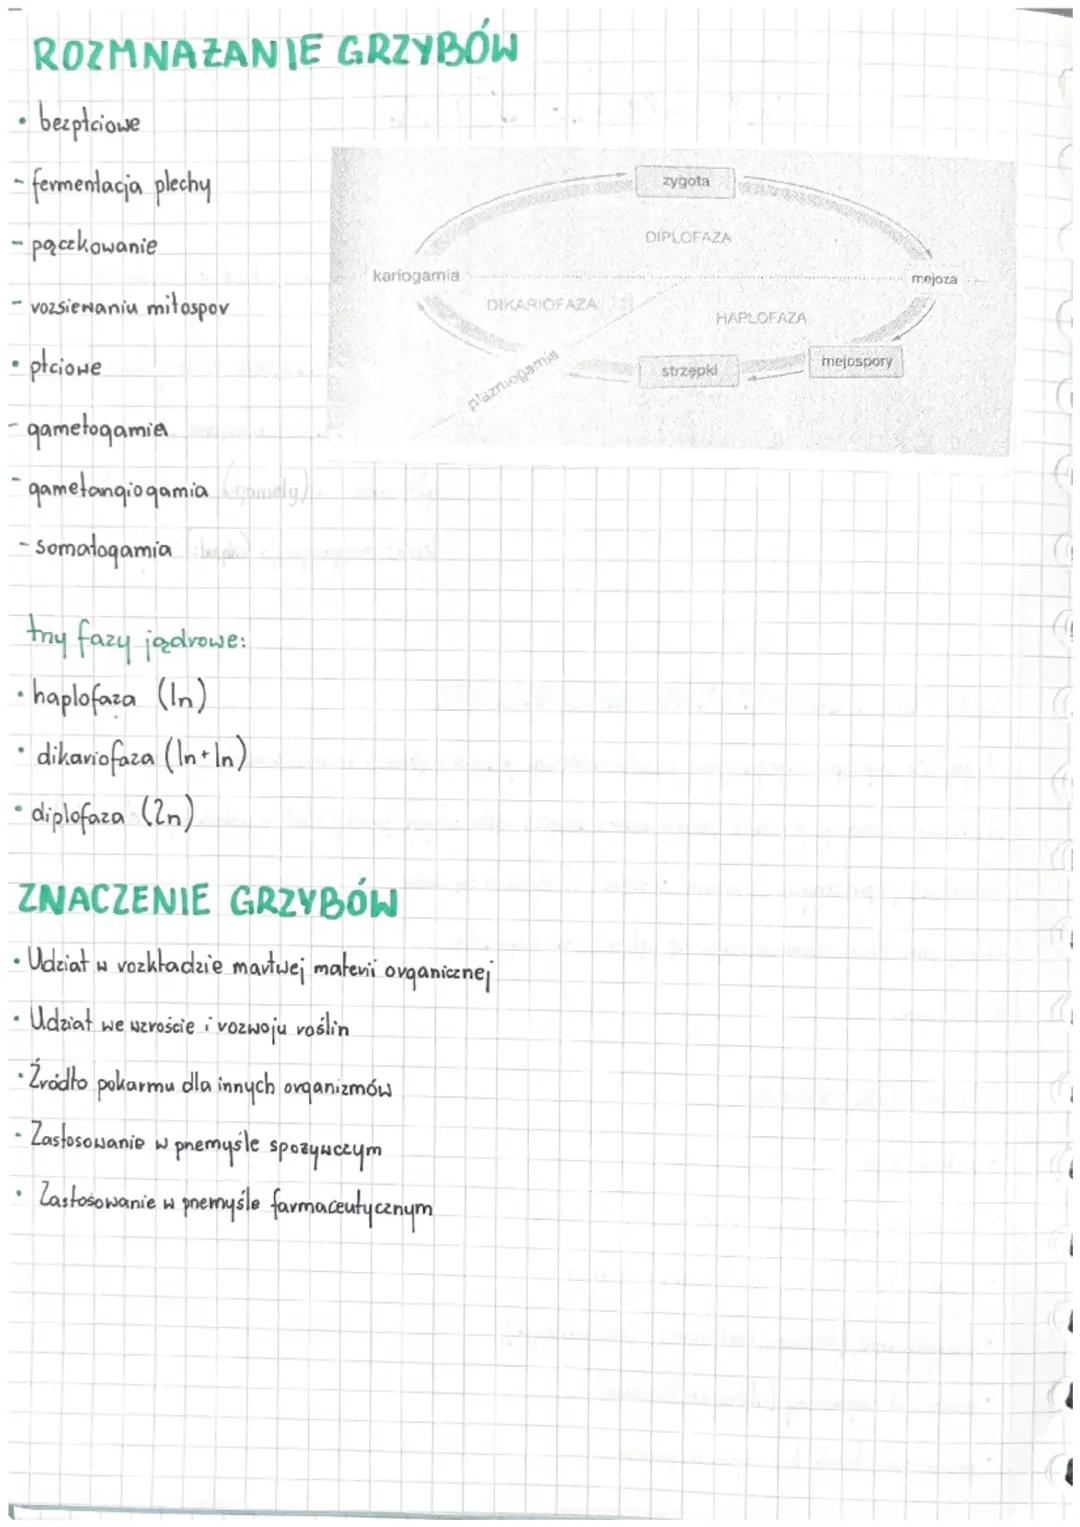 ROZMNAŻANIE GRZYBÓW
• bezpłciowe
- fermentacja plechy
- pączkowanie
- rozsiewaniu mitospor
• płciowe
- gametogamia
- gametangiogamia
- somatogamia
zygota
DIPLOFAZA
kariogamia
mejoza
DIKARIOFAZA
HAPLOFAZA
plazmogamia
strzępki
mejospory
trzy fazy jądrowe:
• haplofaza (1n)
• dikariofaza (1n+1n)
• diplofaza (2n)
ZNACZENIE GRZYBÓW
• Udział w rozkładzie martwej materii organicznej
• Udział we wzroście i rozwoju roślin
• Źródło pokarmu dla innych organizmów
• Zastosowanie w przemyśle spożywczym
• Zastosowanie w przemyśle farmaceutycznym